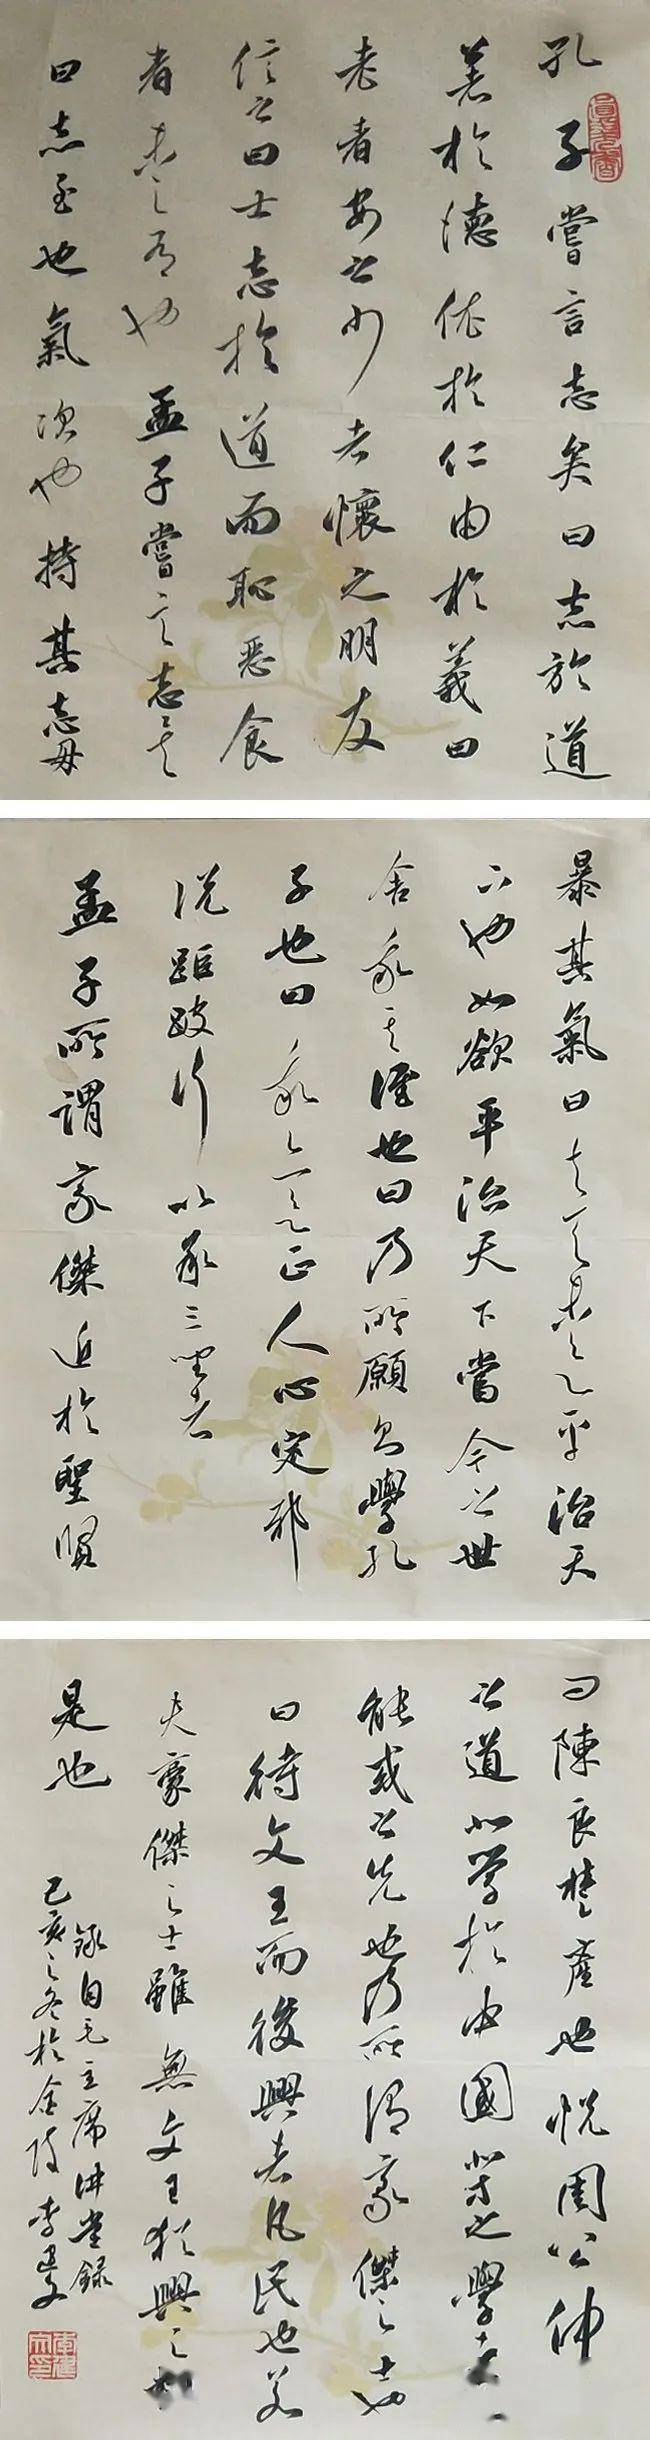 孔子嘗言志矣曰志於道
著於德依於仁由於義曰
老者安之少者懷之朋友
信之曰士志於道而恥惡食
者未之有也孟子嘗言志矣
曰志至也氣次也持其志毋
暴其氣曰夫天未欲平治天
下也如欲平治天下當今之世
舍我其誰也曰乃所願則學孔
子也曰我亦欲正人心定邪
說距跛行以承三聖者
孟子所謂豪傑近於聖賢
曰陳良楚產也悅周公仲
之道北學於中國北方之學者
能或之先也乃所謂豪傑之士也
曰待文王而後興者凡民也若
夫豪傑之士雖無文王猶興之
是也
錄自毛主席講堂錄
己亥之冬於金陵李